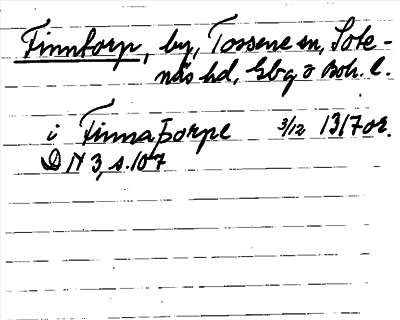 Finntorp, by, Tossene sn, Sote-
näs hd, Gbg o Boh. l.
i Finnaþorpe 3/12 1317 or.
DN 3, s. 107